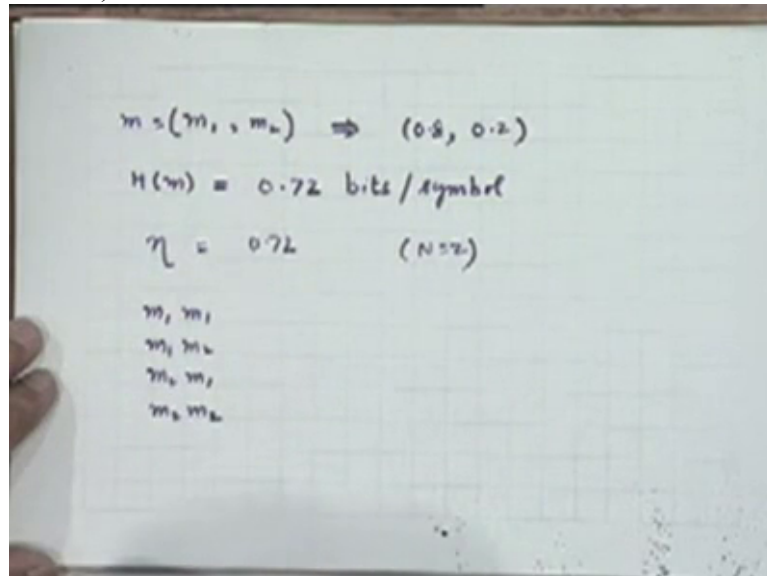 m = (m₁, m₂) ⇒ (0.8, 0.2)
H(m) = 0.72 bits/symbol
η = 0.72 (N=2)
m₁ m₁
m₁ m₂
m₂ m₁
m₂ m₂